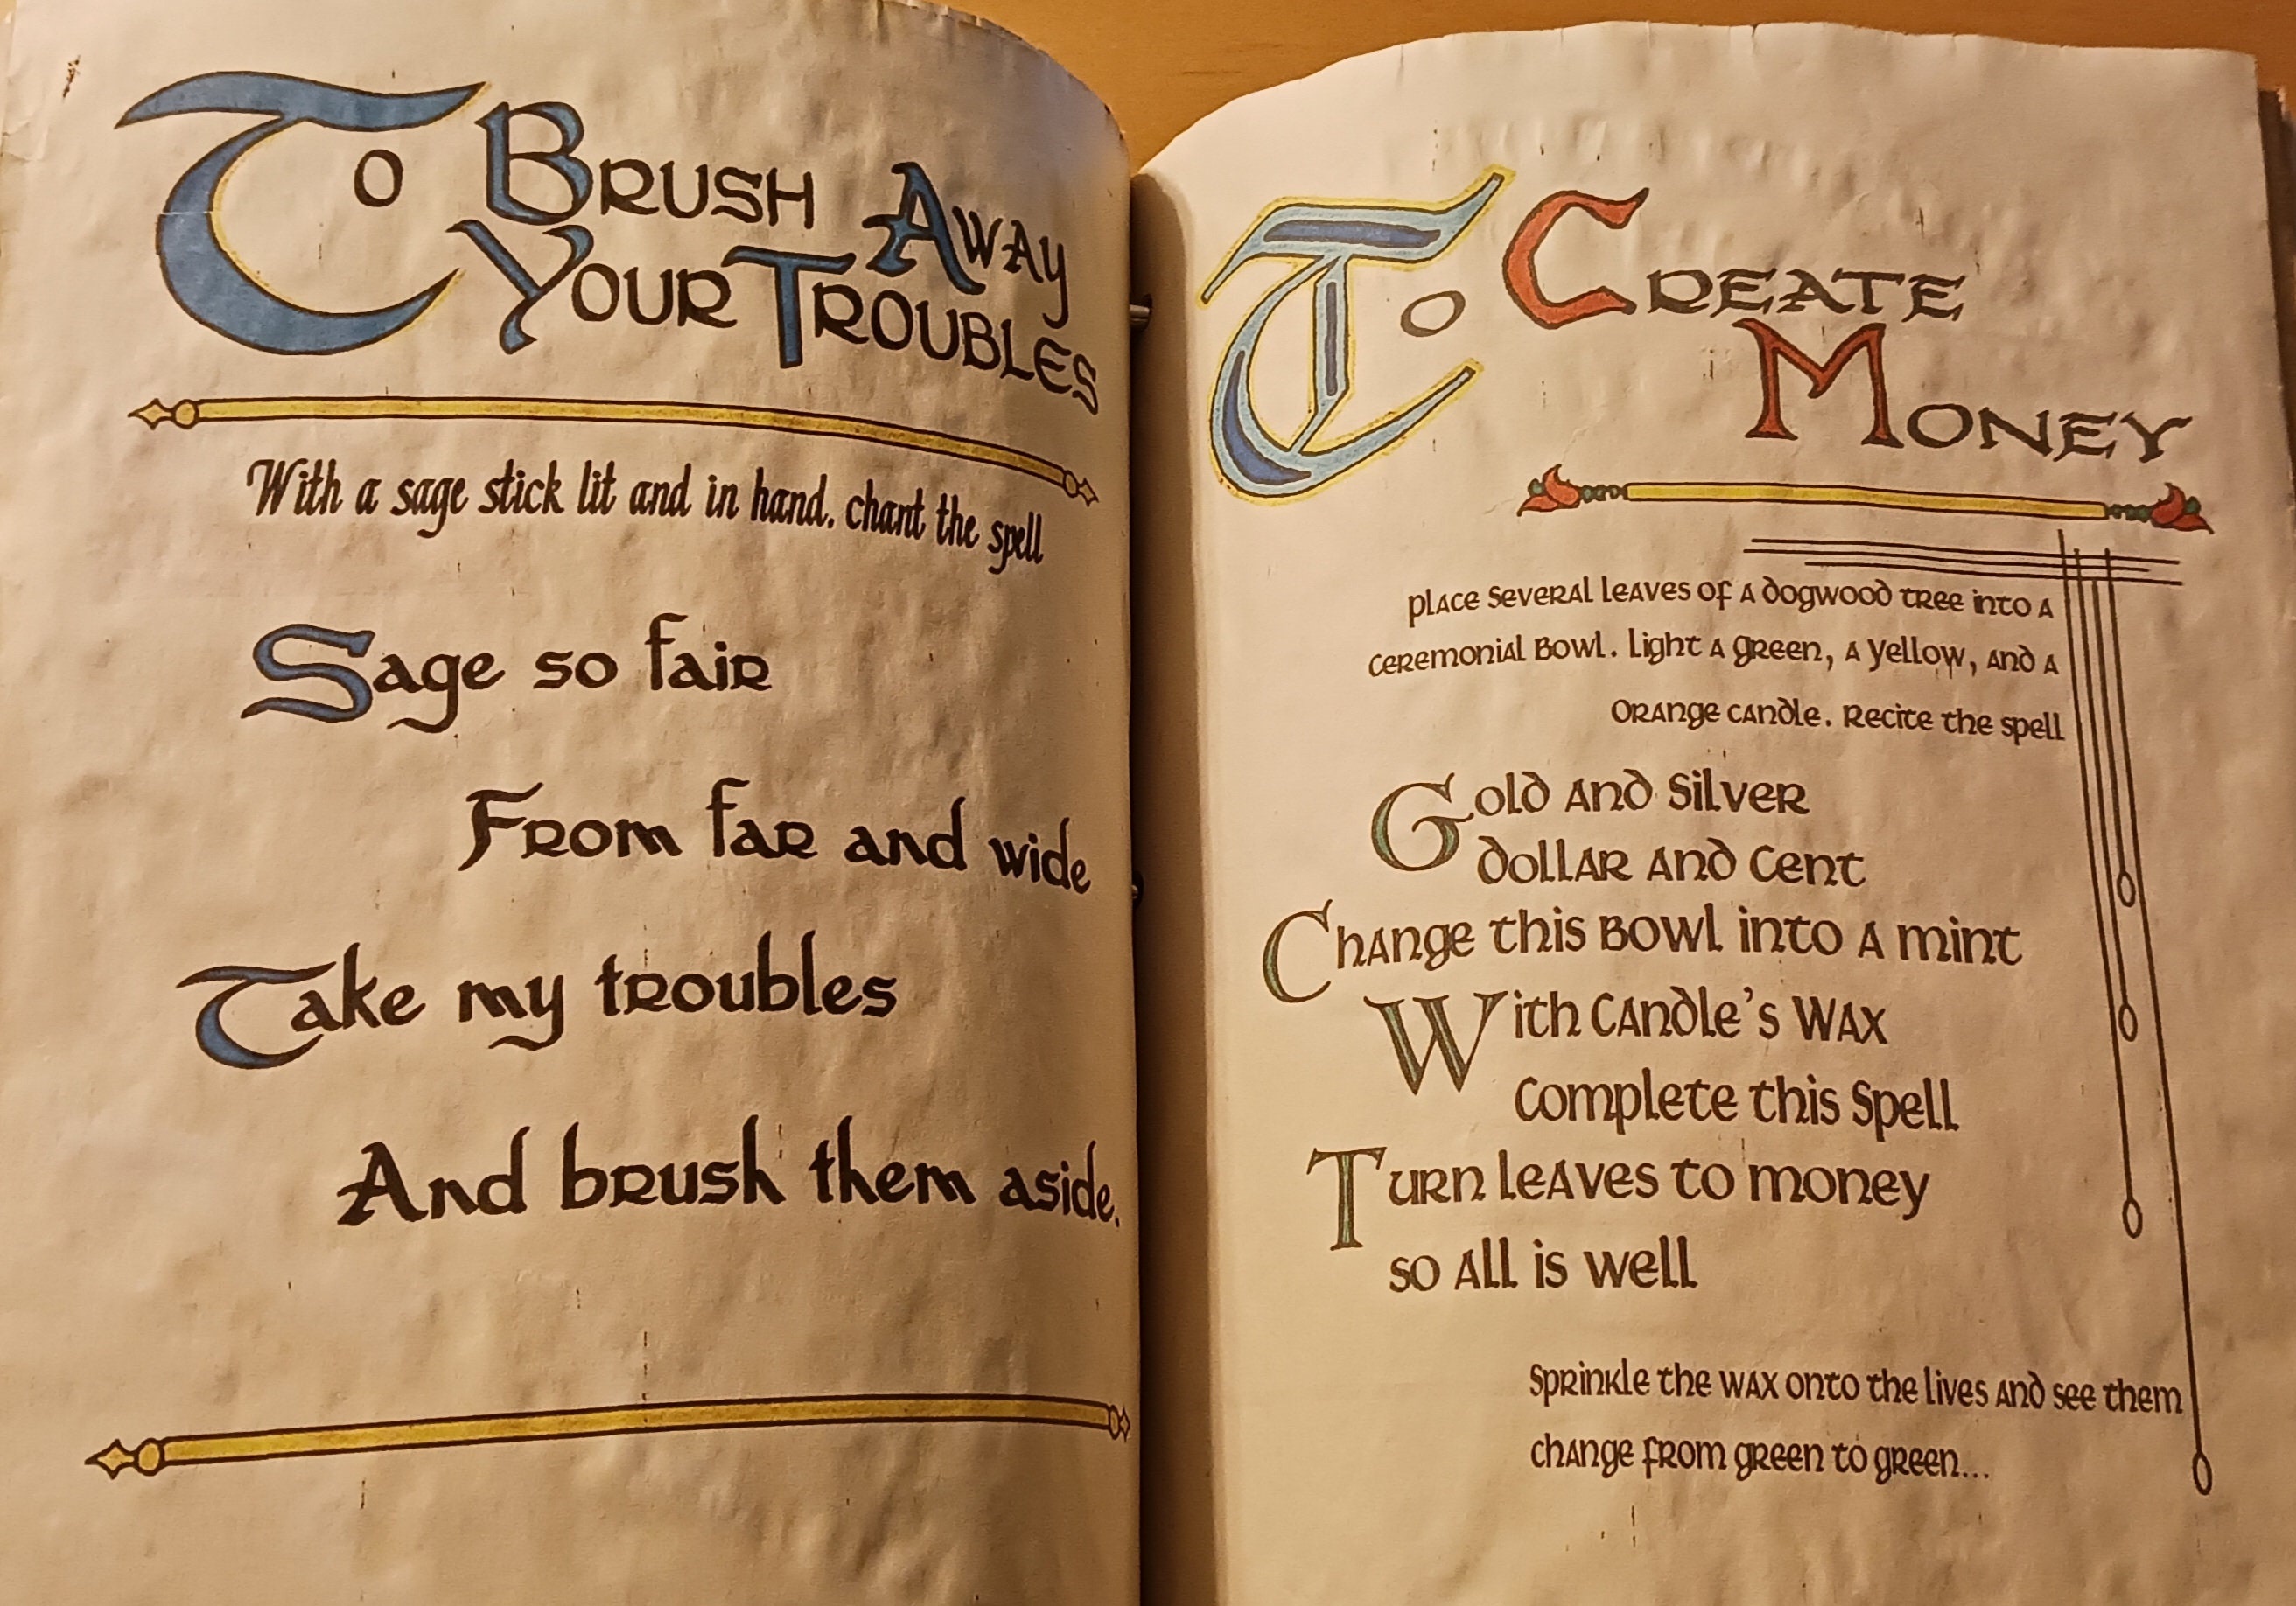 To Brush Away
Your Troubles
With a sage stick lit and in hand. chant the spell
Sage so fair
From far and wide
Take my troubles
And brush them aside.
To Create
Money
place several leaves of a dogwood tree into a
ceremonial bowl. Light a green, a yellow, and a
orange candle. Recite the spell
Gold and Silver
dollar and cent
Change this bowl into a mint
With candle's wax
complete this spell
Turn leaves to money
so all is well
Sprinkle the wax onto the lives and see them
change from green to green...